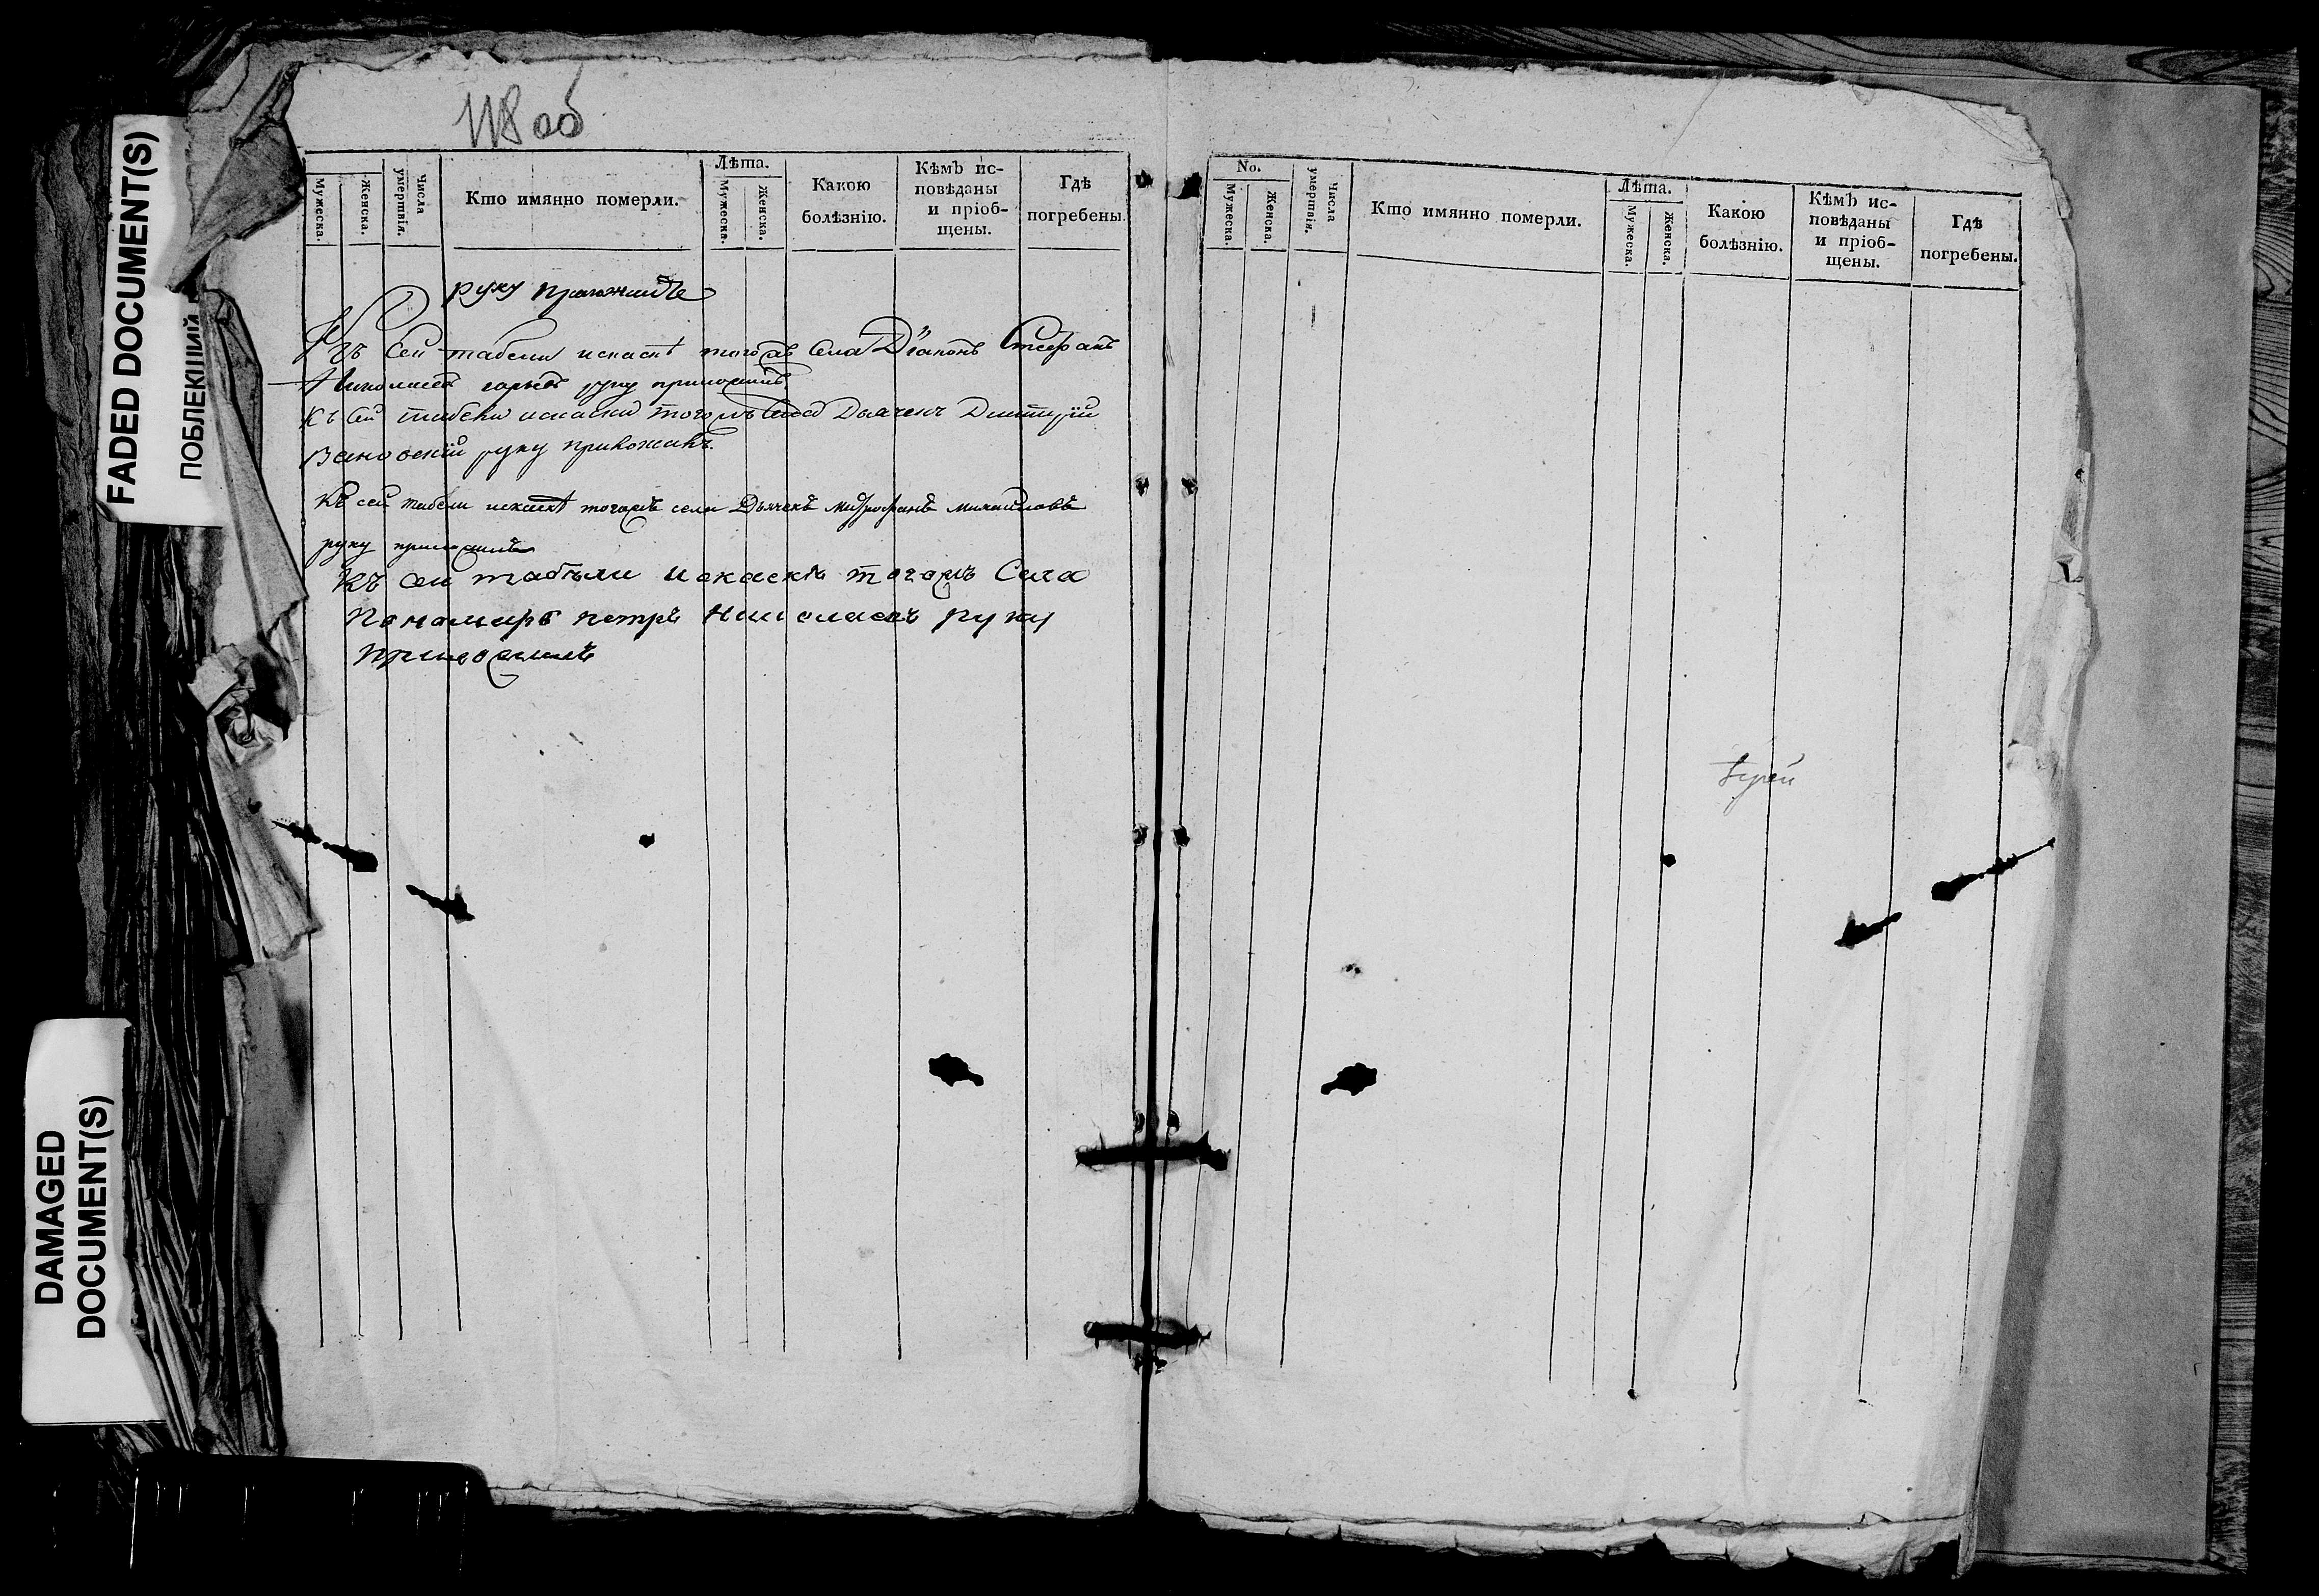 118 об
FADED DOCUMENT(S)
ПОБЛЕКШИЙ
DAMAGED
DOCUMENT(S)
Мужеска.
Женска.
Числа умертвія.
Кто имянно померли.
Лѣта.
Мужеска.
Женска.
Какою болѣзнію.
Кѣмъ ис-
повѣданы
и пріоб-
щены.
Гдѣ погребены.
руку приложилъ
Къ сей табели искаскѣ тогожъ села Дїаконъ Стефанъ
Николаевъ руку приложилъ.
Къ сей табели искаски тогожъ села Дьячекъ Димитрїй
руку приложилъ.
Къ сей табели искаскѣ тогожъ села Дьячекъ Митрофанъ михайловъ
руку приложилъ
Къ сей табѣли искаскѣ тогожъ Села
Пономарь петръ Николаевъ руку
приложилъ
No.
Мужеска.
Женска.
Числа умертвія.
Кто имянно померли.
Лѣта.
Мужеска.
Женска.
Какою болѣзнію.
Кѣмъ ис-
повѣданы
и пріоб-
щены.
Гдѣ погребены.